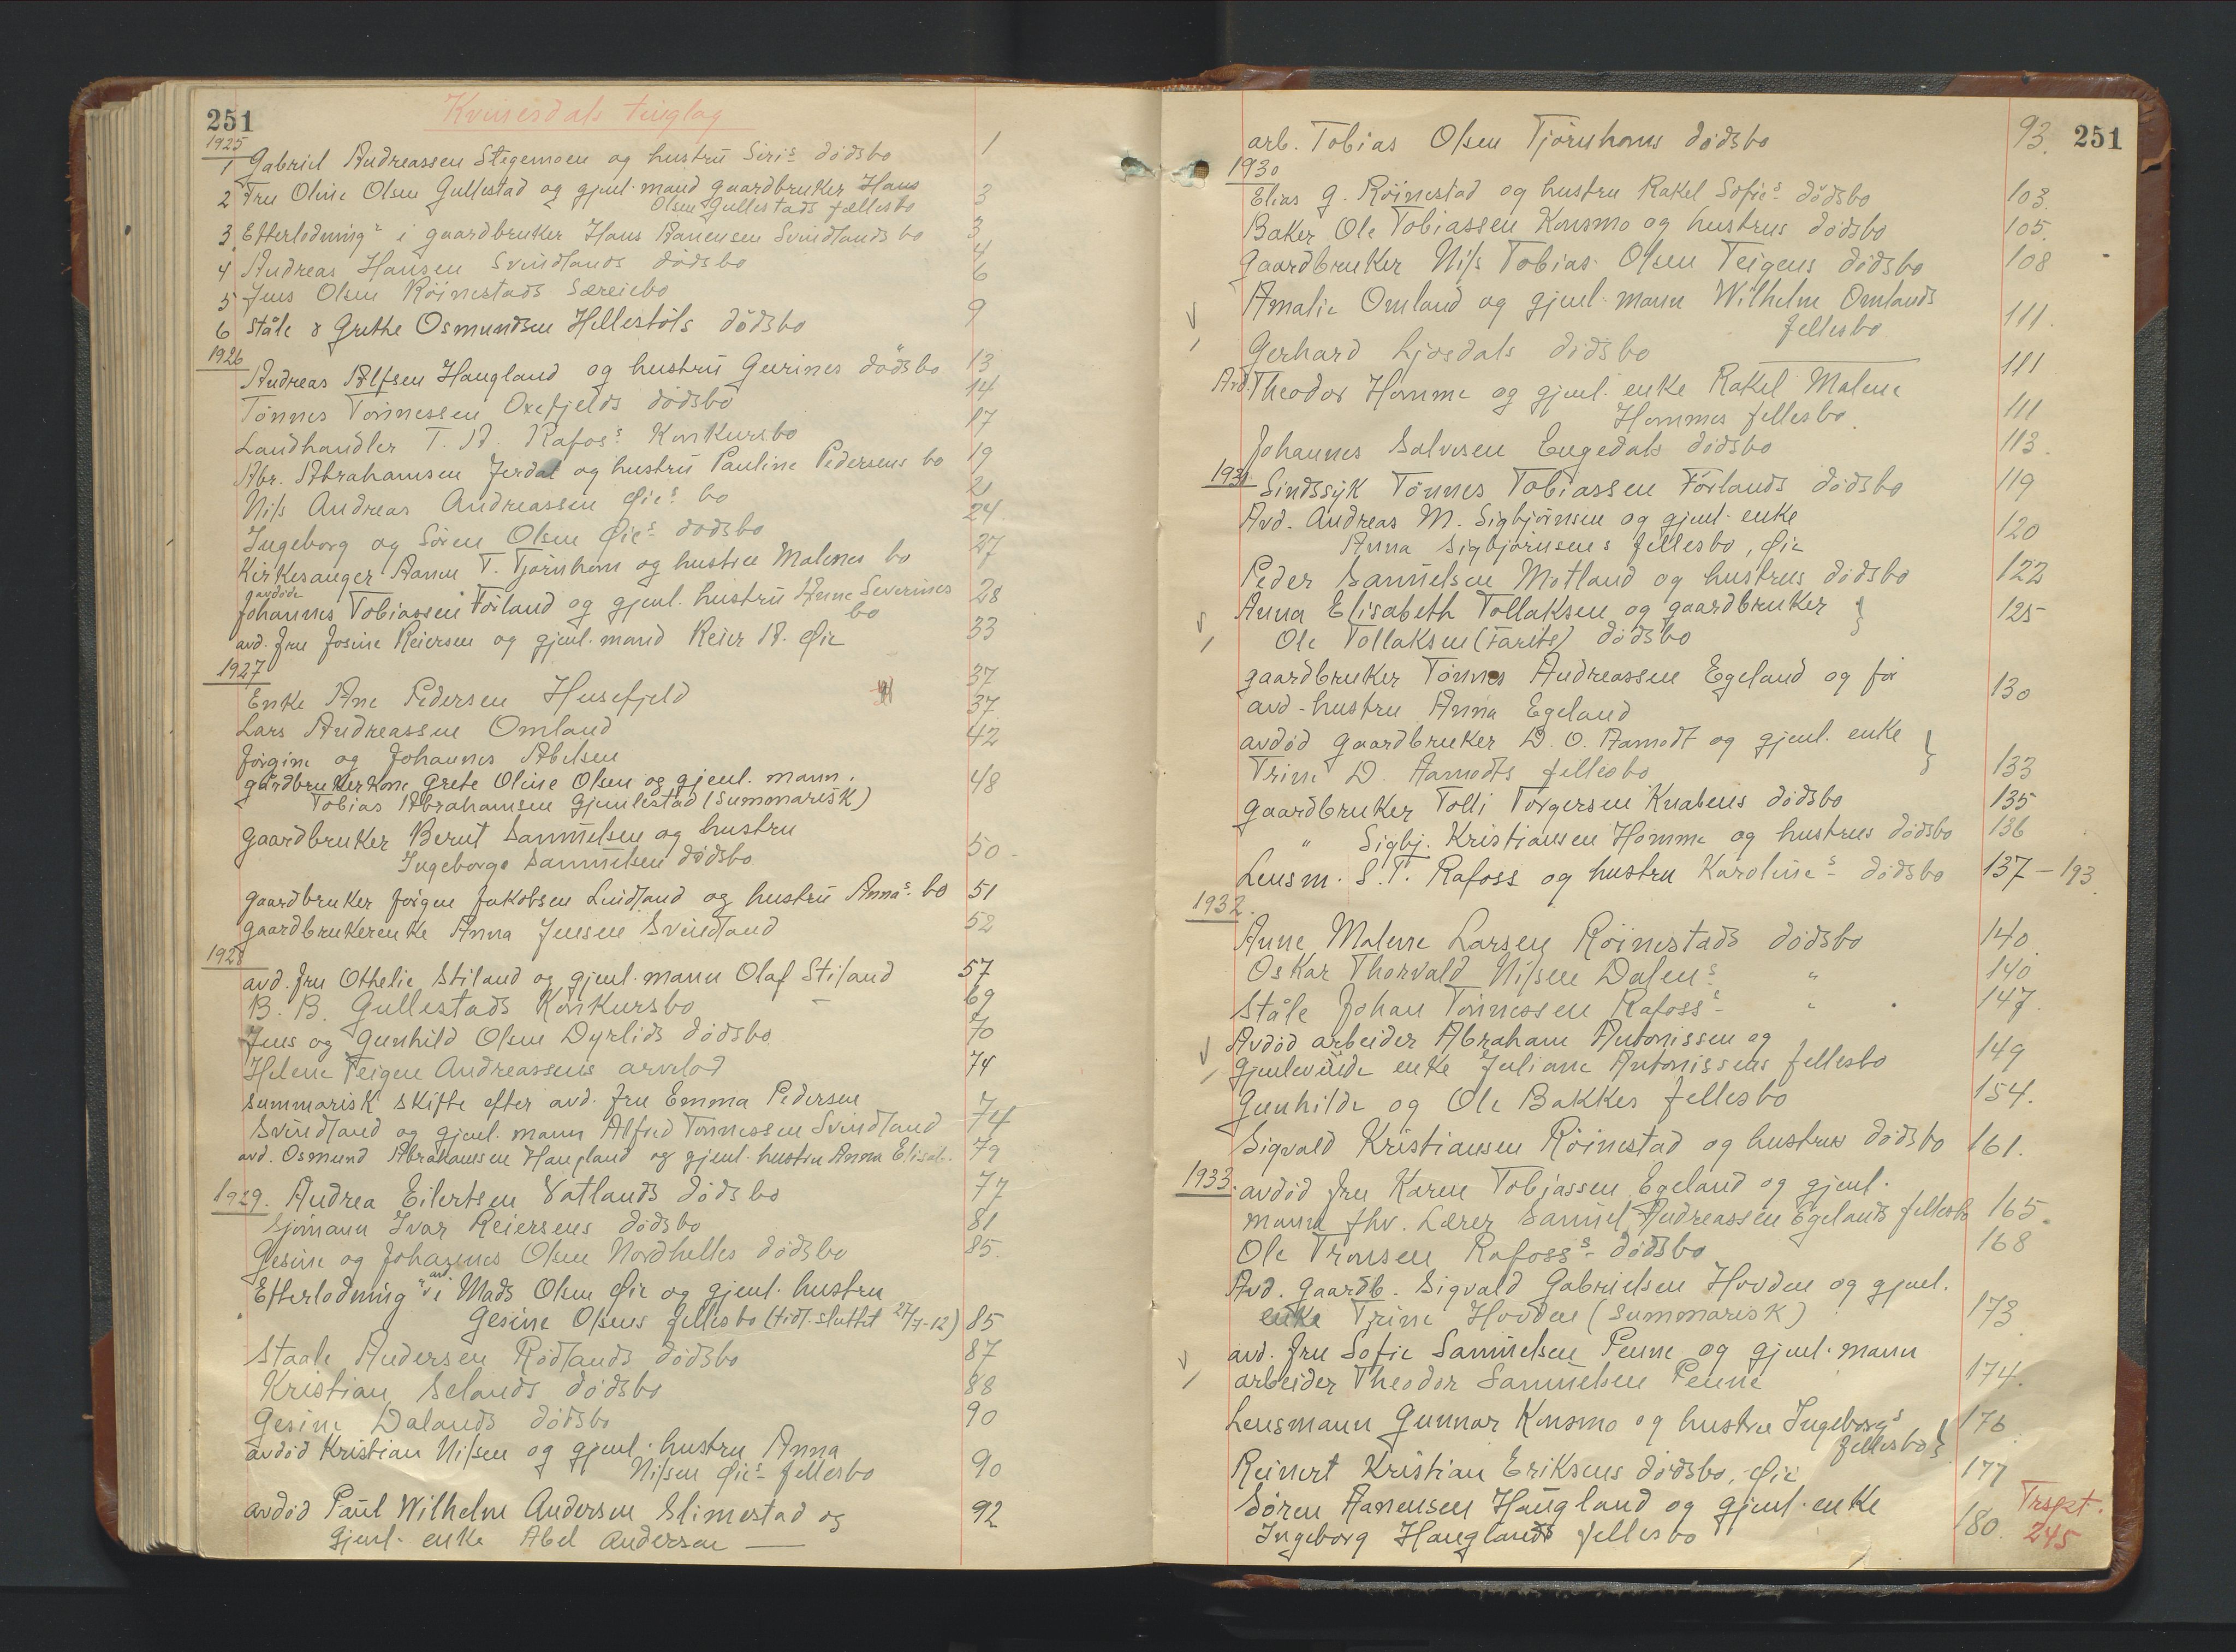 251
Kvinesdals tinglag
1925
1 Gabriel Andreassen Stegemoen og hustru Siris dødsbo 1
2 Fru Oline Olsen Gullestad og gjenl. mand gaardbruker Hans
Olsen Gullestads fællesbo 3
3 Efterlodning i gaardbruker Hans Aanensen Svindlands bo 3
4 Andreas Hansen Svindlands dødsbo 4
5 Jens Olsen Röinestads Særeiebo 6
6 Ståle & Grethe Osmundsen Hellestöls dödsbo 9
1926
Andreas Alfsen Haugland og hustru Gurines dødsbo 13
Tønnes Tønnessen Oxefjelds dødsbo 14
Landhandler T. A. Rafos's Konkursbo 17
Abr. Abrahamsen Jerdal og hustru Pauline Pedersens bo 19
Nils Andreas Andreassen Øie's bo 21
Ingeborg og Sören Olsen Øie's dødsbo 24
Kirkesanger Aanen T. Tjørnhom og hustru Malenes bo 27
avdøde
Johannes Tobiassen Förland og gjenl. hustru Anne Severines
bo 28
avd. fru Josine Reiersen og gjenl. mand Reier A. Øie 33
1927
Enke Ane Pedersen Husefjeld 37
Lars Andreassen Omland 37
Jörgine og Johannes Abelsen 42
gårdbrukerkone Grete Oline Olsen og gjenl. mann
Tobias Abrahamsen Gjemlestad (Summarisk) 48
gaardbruker Bernt Samuelsen og hustru
Ingeborg Samuelsen dødsbo 50
gaardbruker Jörgen Jakobsen Lindland og hustru Anna's bo 51
gaardbrukerenke Anna Jensen Svindland 52
1928
avd. fru Othelie Stiland og gjenl. mann Olaf Stiland 57
B. B. Gullestads Konkursbo 69
Jens og Gunhild Olsen Dyrlids dødsbo 70
Helene Teigen Andreassens arvelod 74
Summarisk skifte efter avd. fru Emma Pedersen
Svindland og gjenl. mann Alfred Tønnessen Svindland 74
avd. Osmund Abrahamsen Haugland og gjenl. hustru Anna Elisab. 79
1929. Andrea Eilertsen Vatlands dødsbo 77
Sjömann Ivar Reiersens dødsbo 81
Gesine og Johannes Olsen Nordhelles dødsbo 85.
Efterlodning i avd. Mads Olsen Øie og gjenl. hustru
Gesine Olsens fellesbo (tidl. sluttet 27/7-12) 85
Staale Andersen Rödlands dødsbo 87
Kristian Selands dødsbo 88
Gesine Dalands dødsbo 90
avdöd Kristian Nilsen og gjenl. hustru Anna
Nilsen Øie's fellesbo 90
avdöd Paul Wilhelm Andersen Slimestad og
gjenl. enke Abel Andersen 92
251
arb. Tobias Olsen Tjörnhoms dødsbo 93.
1930
Elias G. Röinestad og hustru Rakel Sofie's dödsbo 103.
Baker Ole Tobiassen Konsmo og hustrus dødsbo 105.
gaardbruker Nils Tobias Olsen Teigens dødsbo 108
Amalie Omland og gjenl. mann Wilhelm Omlands
fellesbo 111.
Gerhard Ljosdals dødsbo 111
Avd. Theodor Homme og gjenl. enke Rakel Malene
Hommes fellesbo. 111
Johannes Salvesen Engedals dødsbo 113.
1931
Sindssyk Tönnes Tobiassen Förlands dødsbo 119
Avd. Andreas M. Sigbjörnsen og gjenl. enke
Anna Sigbjörnsens fellesbo, Øie 120
Peder Samuelsen Motland og hustrus dødsbo 122
Anna Elisabeth Tollaksen og gaardbruker
Ole Tollaksen (Farite) dødsbo 125
gaardbruker Tönnes Andreassen Egeland og för
avd. hustru Anna Egeland 130
avdöd gaardbruker D. O. Aamodt og gjenl. enke
Trine D. Aamodts fellesbo 133
gaardbruker Tolli Torgersen Knabens dødsbo 135
" Sigbj. Kristiansen Homme og hustrus dødsbo 136
Lensm. S. T. Rafoss og hustru Karoline's dødsbo 137 - 193.
1932.
Anne Malene Larsen Röinestads dødsbo 140
Oskar Thorvald Nilsen Dalen's " 140
Ståle Johan Tönnessen Rafoss's " 147
Avdöd arbeider Abraham Antonissen og
gjenlevende enke Juliane Antonissens fellesbo 149
Gunhilde og Ole Bakkes fellesbo 154.
Sigvald Kristiansen Röinestad og hustrus dødsbo 161.
1933. avdöd fru Karen Tobiassen Egeland og gjenl.
mann fhv. Lærer Samuel Andreassen Egelands fellesbo 165.
Ole Tronsen Rafoss's dødsbo 168
Avd. gaardb. Sigvald Gabrielsen Hovden og gjenl.
enke Trine Hovden (Summarisk) 173
avd. fru Sofie Samuelsen Penne og gjenl. mann
arbeider Theodor Samuelsen Penne 174.
Lensmann Gunnar Konsmo og hustru Ingeborg's
fellesbo 176
Reinert Kristian Eriksens dødsbo, Øie 177
Sören Aanensen Haugland og gjenl. enke
Ingeborg Hauglands fellesbo 180.
Trspt. 245